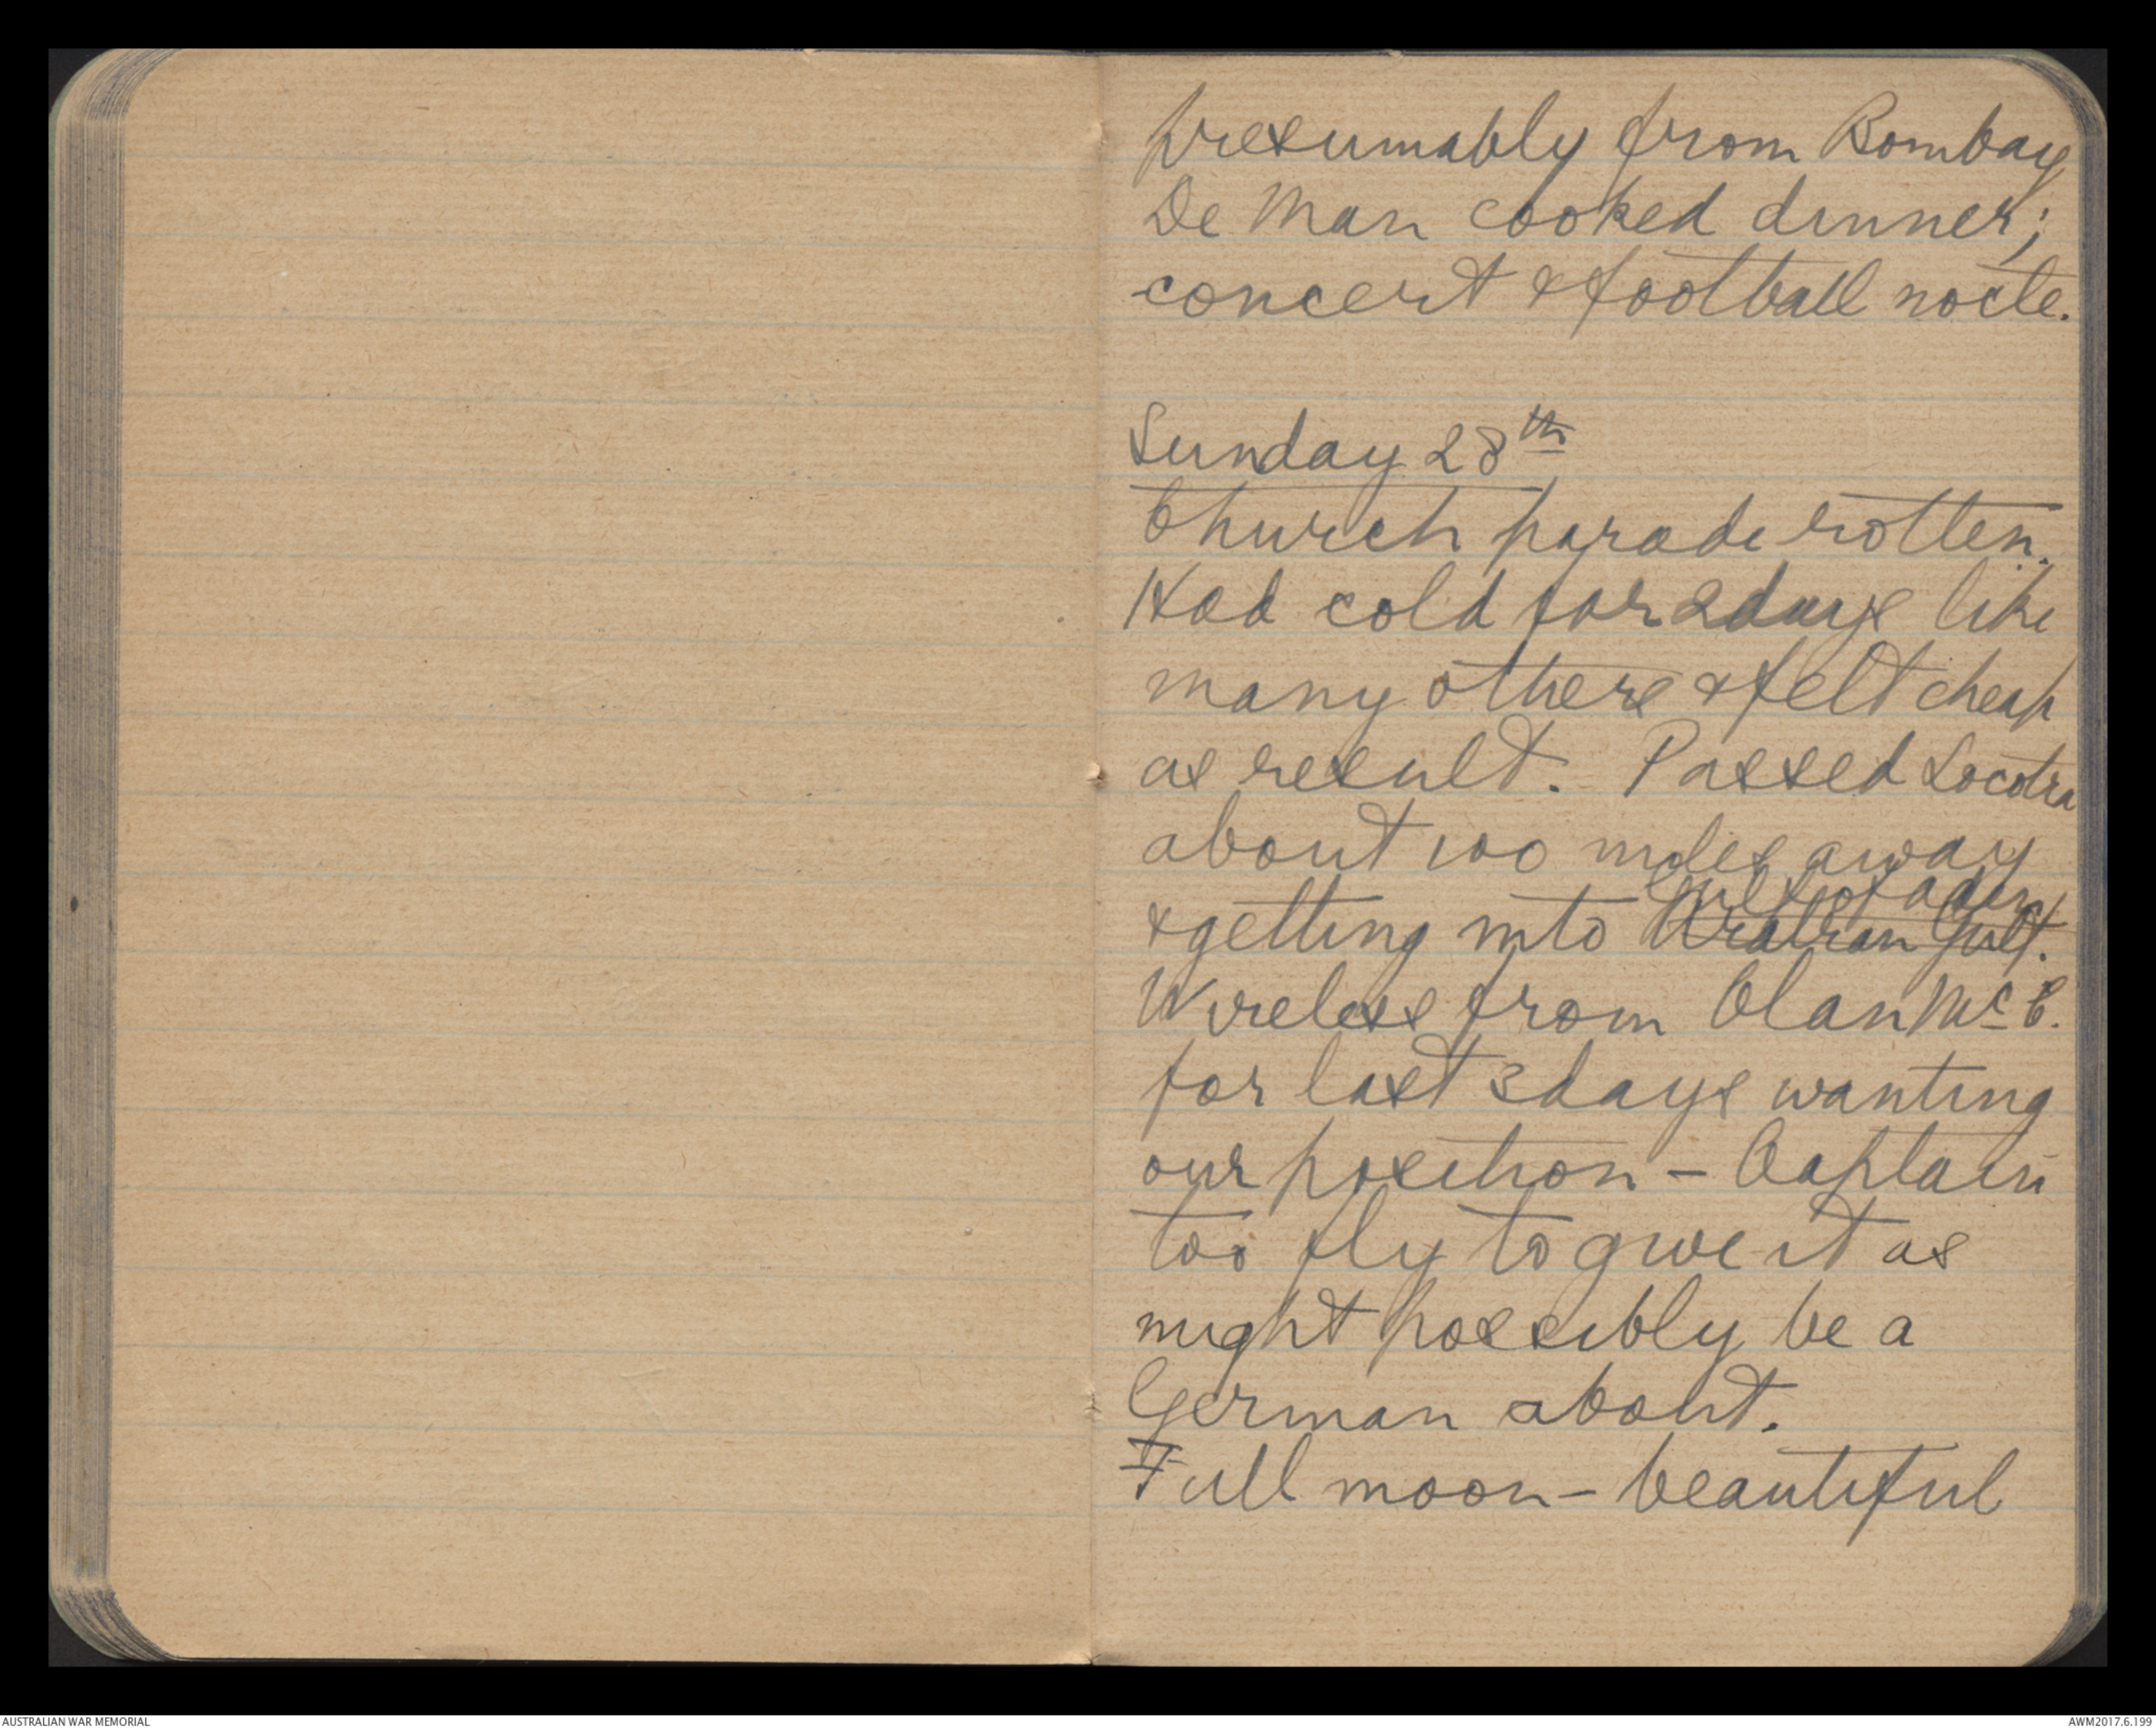 presumably from Bombay
De Man cooked dinner;
concert & football nocte.
Sunday 28th
Church parade rotten.
Had cold for 2 days like
many others & felt cheap
as result. Passed Socotra
about 100 miles away
Gulf of Aden
& getting into Arabian Gulf.
Wireless from Clan McC.
for last 3 days wanting
our position - Captain
too fly to give it as
might possibly be a
German about.
Full moon - beautiful
AUSTRALIAN WAR MEMORIAL
AWM2017.6.199